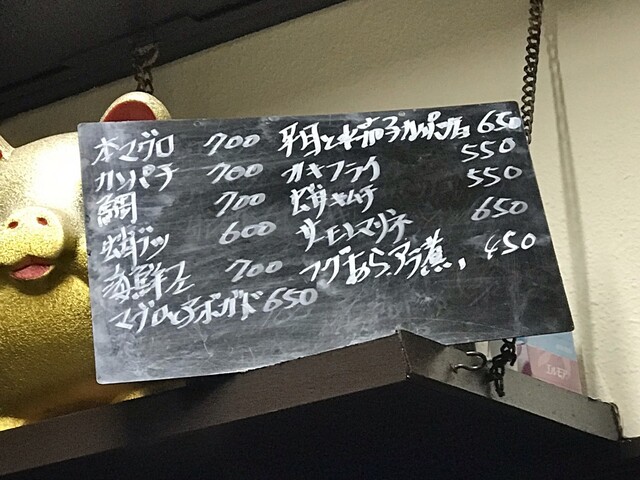 本マグロ 700
カンパチ 700
鯛 700
蛸ブツ 600
海鮮ユッケ 700
マグロとアボガド 650
平目と水茄子カルパッチョ 650
カキフライ 550
蛸キムチ 550
サーモンマリネ 650
フグあら、アラ煮、 450